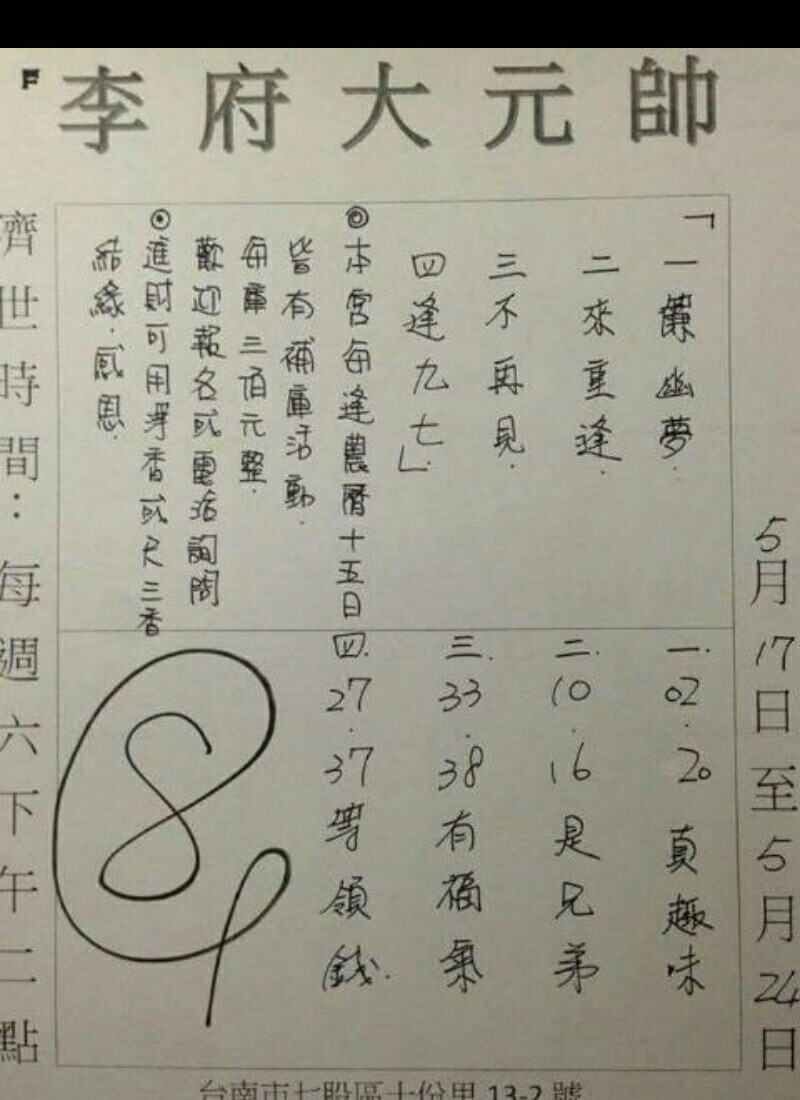 李府大元帥
5月17日至5月24日
「一簾幽夢.
二來重逢.
三不再見.
四逢九七」.
◎本宮每逢農曆十五日
皆有補庫活動.
每庫三佰元整.
歡迎報名或電話詢問
◎進財可用淨香或尺三香
結緣.感恩.
一.02.20真趣味
二.10.16是兄弟
三.33.38有福氣
四.27.37等領錢.
濟世時間：每週六下午二點
台南市七股區十份里13-2號